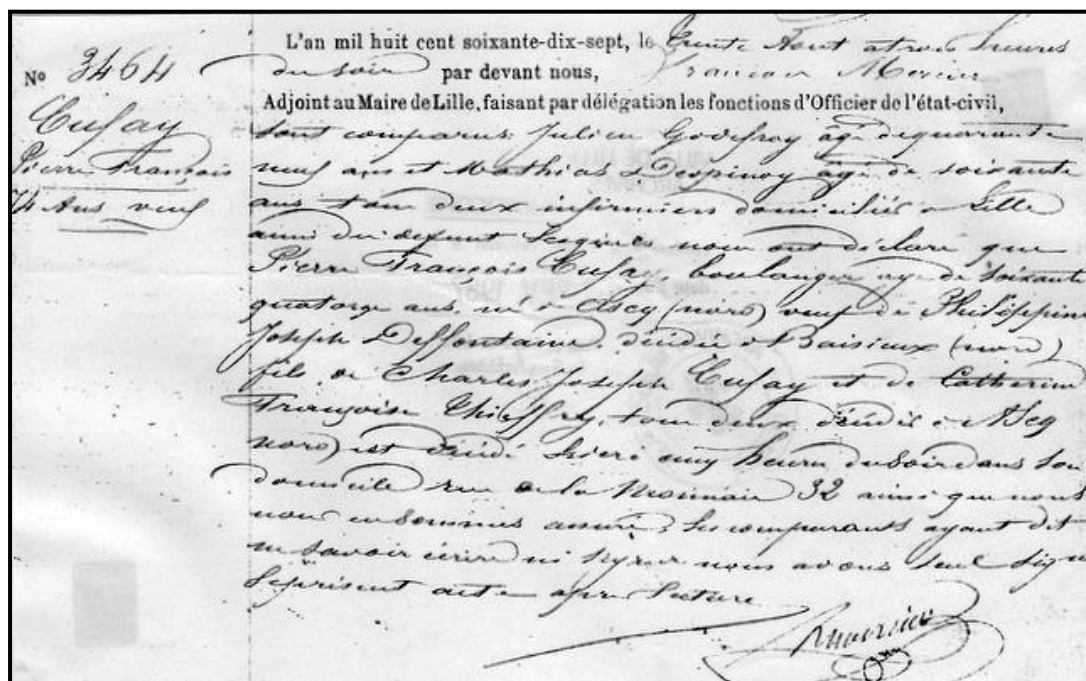 L'an mil huit cent soixante-dix-sept, le Trente Aout a trois heures
du soir par devant nous, François Mercier
Adjoint au Maire de Lille, faisant par délégation les fonctions d'Officier de l'état-civil,
No 3464
Pierre François
74 Ans veuf
sont comparus Julien Godefroy âgé de quarante
neuf ans et Mathias Despinoy âgé de soixante
ans tous deux infirmiers domiciliés à Lille
amis du defunt lesquels nous ont déclaré que
Pierre François boulanger agé de soixante
quatorze ans, né à Ascq (nord) veuf de Philippine
Joseph Deffontaine décédée à Baisieux (nord)
fils de Charles Joseph et de Catherine
Françoise Thieffry, tous deux décédés à Ascq
nord) est décédé hier à cinq heures du soir dans son
domicile rue de la Monnaie 32 ainsi que nous
nous en sommes assuré, les comparants ayant dit
ne savoir écrire ni signer nous avons seul signé
le présent acte apres lecture